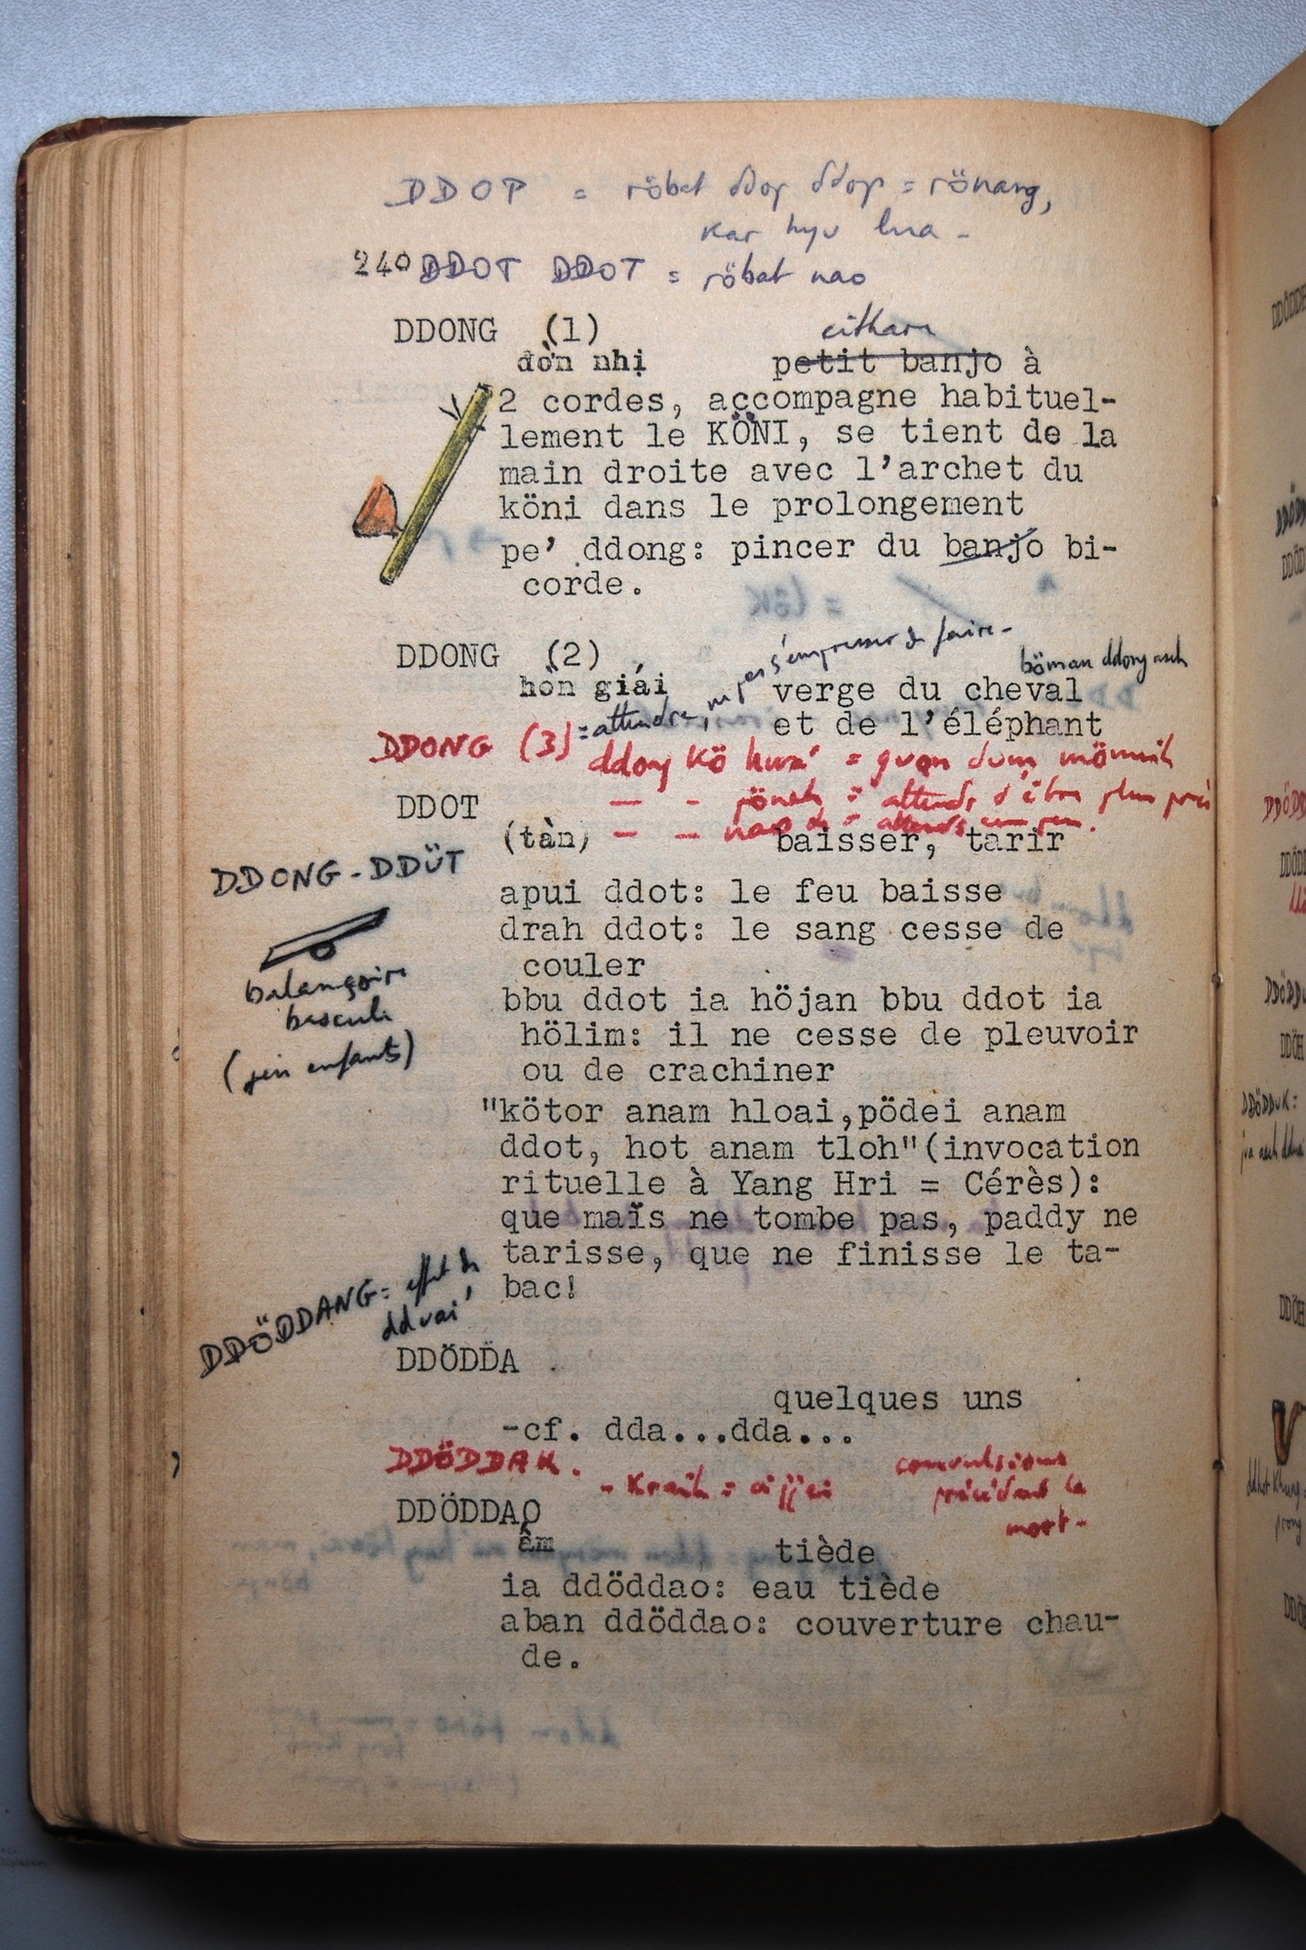 DDOP = röbat ddop ddop = rönang,
kar hyu lua -
240 DDOT DDOT = röbat nao
DDONG (1)
cithare
đờn nhị petit banjo à
2 cordes, accompagne habituel-
lement le KÖNI, se tient de la
main droite avec l'archet du
köni dans le prolongement
pe' ddong: pincer du banjo bi-
corde.
DDONG (2)
s'empresser de faire -
böman ddong aseh
hòn giái verge du cheval
et de l'éléphant
DDONG (3) = attendre, ne pas
ddong kö = guan dum
- - = attends d'être plus près
- - nao = attends un peu.
DDOT
(tàn) baisser, tarir
DDONG-DDÜT
balançoire
bascule
(jeu enfants)
apui ddot: le feu baisse
drah ddot: le sang cesse de
couler
bbu ddot ia höjan bbu ddot ia
hölim: il ne cesse de pleuvoir
ou de crachiner
"kötor anam hloai,pödei anam
ddot, hot anam tloh"(invocation
rituelle à Yang Hri = Cérès):
que maïs ne tombe pas, paddy ne
tarisse, que ne finisse le ta-
bac!
DDÖDDANG = effet de
dduai'
DDÖDDA
quelques uns
-cf. dda...dda...
DDÖDDAK.
- = convulsions
précédant la
mort -
DDÖDDAO
ấm tiède
ia ddöddao: eau tiède
aban ddöddao: couverture chau-
de.
DDÖDDUK =